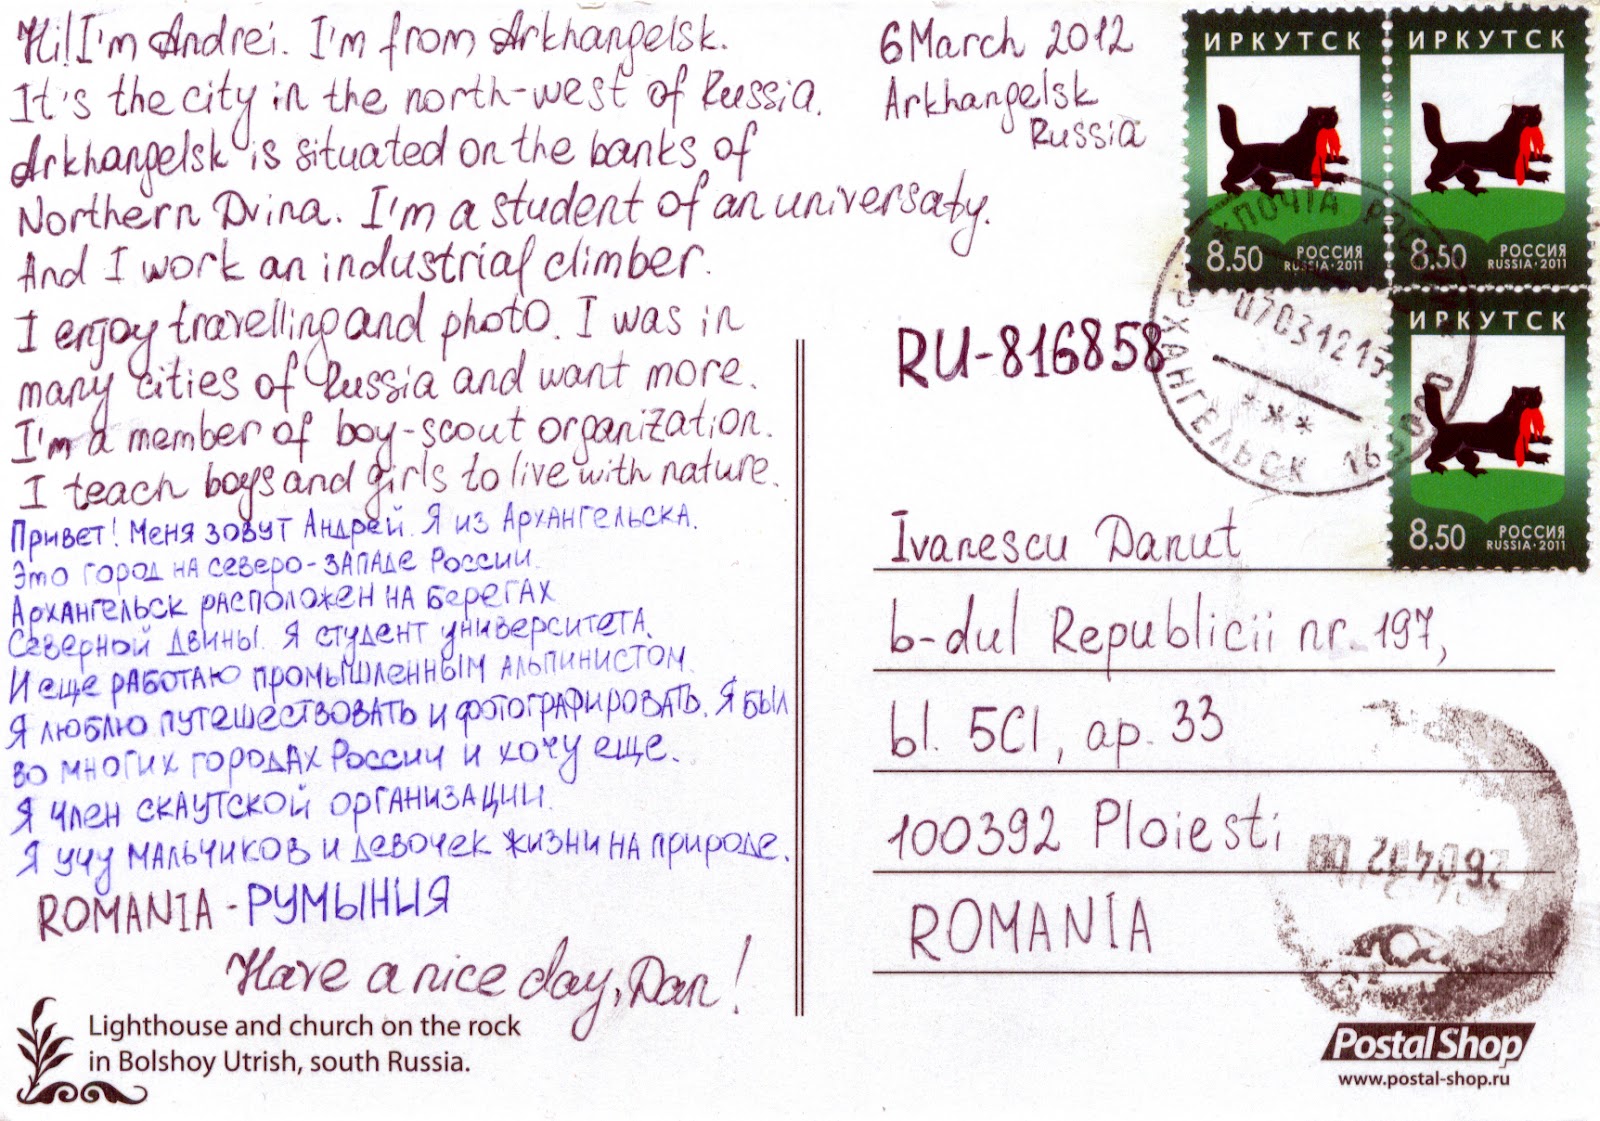 Hi! I'm Andrei. I'm from Arkhangelsk.
It's the city in the north-west of Russia.
Arkhangelsk is situated on the banks of
Northern Dvina. I'm a student of an universaty.
And I work an industrial climber.
I enjoy travelling and photo. I was in
many cities of Russia and want more.
I'm a member of boy-scout organization.
I teach boys and girls to live with nature.
Привет! Меня зовут Андрей. Я из Архангельска.
Это город на северо-западе России.
Архангельск расположен на берегах
Северной Двины. Я студент университета.
И еще работаю промышленным альпинистом.
Я люблю путешествовать и фотографировать. Я был
во многих городах России и хочу еще.
Я член скаутской организации.
Я учу мальчиков и девочек жизни на природе.
ROMANIA - РУМЫНИЯ
Have a nice day, Dan!
Lighthouse and church on the rock
in Bolshoy Utrish, south Russia.
6 March 2012
Arkhangelsk
Russia
ИРКУТСК
8.50 РОССИЯ
RUSSIA·2011
ИРКУТСК
8.50 РОССИЯ
RUSSIA·2011
ИРКУТСК
8.50 РОССИЯ
RUSSIA·2011
ПОЧТА
07031215
АРХАНГЕЛЬСК
RU-816858
Ivanescu Danut
b-dul Republicii nr. 197,
bl. 5C1, ap. 33
100392 Ploiesti
ROMANIA
Postal Shop
www.postal-shop.ru